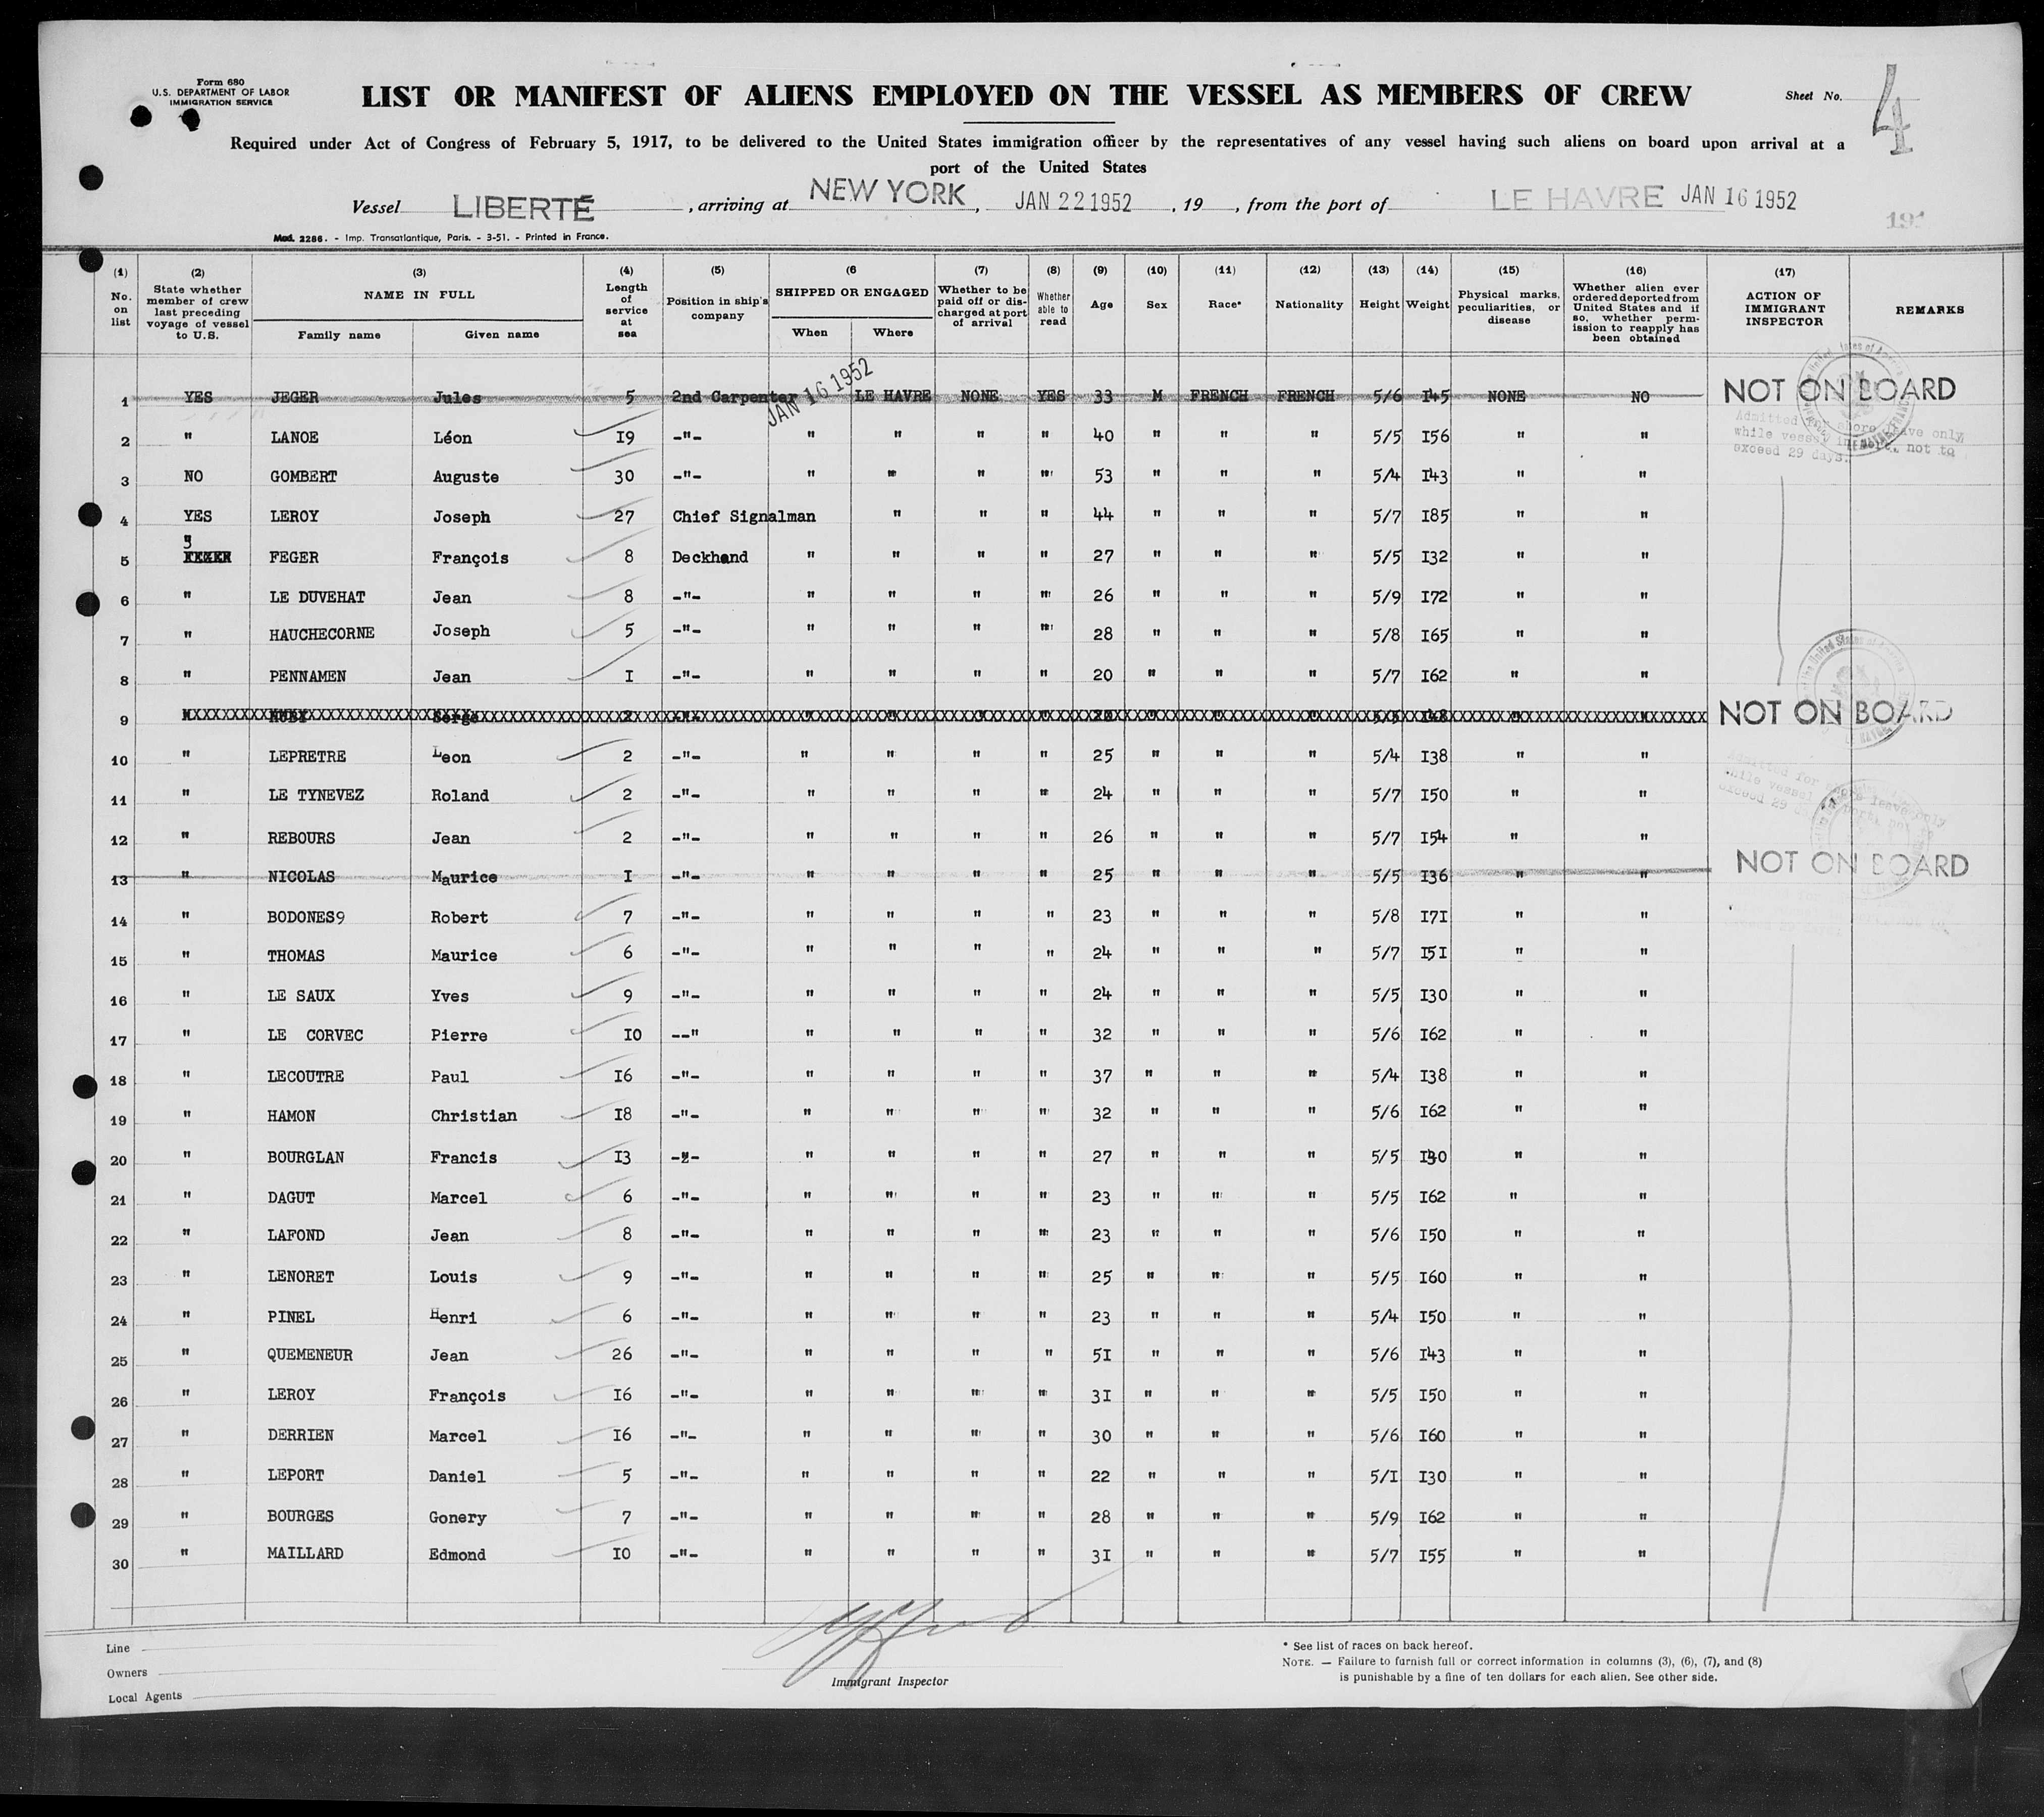 Form 680
U.S. DEPARTMENT OF LABOR
IMMIGRATION SERVICE
LIST OR MANIFEST OF ALIENS EMPLOYED ON THE VESSEL AS MEMBERS OF CREW
Sheet No. 4
Required under Act of Congress of February 5, 1917, to be delivered to the United States immigration officer by the representatives of any vessel having such aliens on board upon arrival at a
port of the United States
Vessel LIBERTÉ, arriving at NEW YORK, JAN 22 1952, 19 , from the port of LE HAVRE JAN 16 1952
Mod. 2286. - Imp. Transatlantique, Paris. - 3-51. - Printed in France.
(1) No. on list
(2) State whether member of crew last preceding voyage of vessel to U.S.
(3) NAME IN FULL Family name Given name
(4) Length of service at sea
(5) Position in ship's company
(6 SHIPPED OR ENGAGED When Where
(7) Whether to be paid off or discharged at port of arrival
(8) Whether able to read
(9) Age
(10) Sex
(11) Race*
(12) Nationality
(13) Height
(14) Weight
(15) Physical marks, peculiarities, or disease
(16) Whether alien ever ordered deported from United States and if so, whether permission to reapply has been obtained
(17) ACTION OF IMMIGRANT INSPECTOR
REMARKS
1 YES JEGER Jules 5 2nd Carpenter JAN 16 1952 LE HAVRE NONE YES 33 M FRENCH FRENCH 5/6 I45 NONE NO NOT ON BOARD
Admitted for shore leave only
while vessel in port, not to
exceed 29 days.
2 " LANOE Léon I9 -"- " " " " 40 " " " 5/5 I56 " "
3 NO GOMBERT Auguste 30 -"- " " " " 53 " " " 5/4 I43 " "
4 YES LEROY Joseph 27 Chief Signalman " " " 44 " " " 5/7 I85 " "
5 " FEGER François 8 Deckhand " " " " 27 " " " 5/5 I32 " "
6 " LE DUVEHAT Jean 8 -"- " " " " 26 " " " 5/9 I72 " "
7 " HAUCHECORNE Joseph 5 -"- " " " " 28 " " " 5/8 I65 " "
8 " PENNAMEN Jean I -"- " " " " 20 " " " 5/7 I62 " "
9 Serge 2 -"- " " " " " " " " " NOT ON BOARD
10 " LEPRETRE Leon 2 -"- " " " " 25 " " " 5/4 I38 " "
11 " LE TYNEVEZ Roland 2 -"- " " " " 24 " " " 5/7 I50 " "
12 " REBOURS Jean 2 -"- " " " " 26 " " " 5/7 I54 " "
13 " NICOLAS Maurice I -"- " " " " 25 " " " 5/5 I36 " " NOT ON BOARD
14 " BODONES9 Robert 7 -"- " " " " 23 " " " 5/8 I7I " "
15 " THOMAS Maurice 6 -"- " " " " 24 " " " 5/7 I5I " "
16 " LE SAUX Yves 9 -"- " " " " 24 " " " 5/5 I30 " "
17 " LE CORVEC Pierre I0 --" " " " " 32 " " " 5/6 I62 " "
18 " LECOUTRE Paul I6 -"- " " " " 37 " " " 5/4 I38 " "
19 " HAMON Christian I8 -"- " " " " 32 " " " 5/6 I62 " "
20 " BOURGLAN Francis I3 -"- " " " " 27 " " " 5/5 "  "
21 " DAGUT Marcel 6 -"- " " " " 23 " " " 5/5 I62 " "
22 " LAFOND Jean 8 -"- " " " " 23 " " " 5/6 I50 " "
23 " LENORET Louis 9 -"- " " " " 25 " " " 5/5 I60 " "
24 " PINEL Henri 6 -"- " " " " 23 " " " 5/4 I50 " "
25 " QUEMENEUR Jean 26 -"- " " " " 5I " " " 5/6 I43 " "
26 " LEROY François I6 -"- " " " " 3I " " " 5/5 I50 " "
27 " DERRIEN Marcel I6 -"- " " " " 30 " " " 5/6 I60 " "
28 " LEPORT Daniel 5 -"- " " " " 22 " " " 5/I I30 " "
29 " BOURGES Gonery 7 -"- " " " " 28 " " " 5/9 I62 " "
30 " MAILLARD Edmond I0 -"- " " " " 3I " " " 5/7 I55 " "
Line
Owners
Local Agents
Immigrant Inspector
* See list of races on back hereof.
NOTE. — Failure to furnish full or correct information in columns (3), (6), (7), and (8)
is punishable by a fine of ten dollars for each alien. See other side.